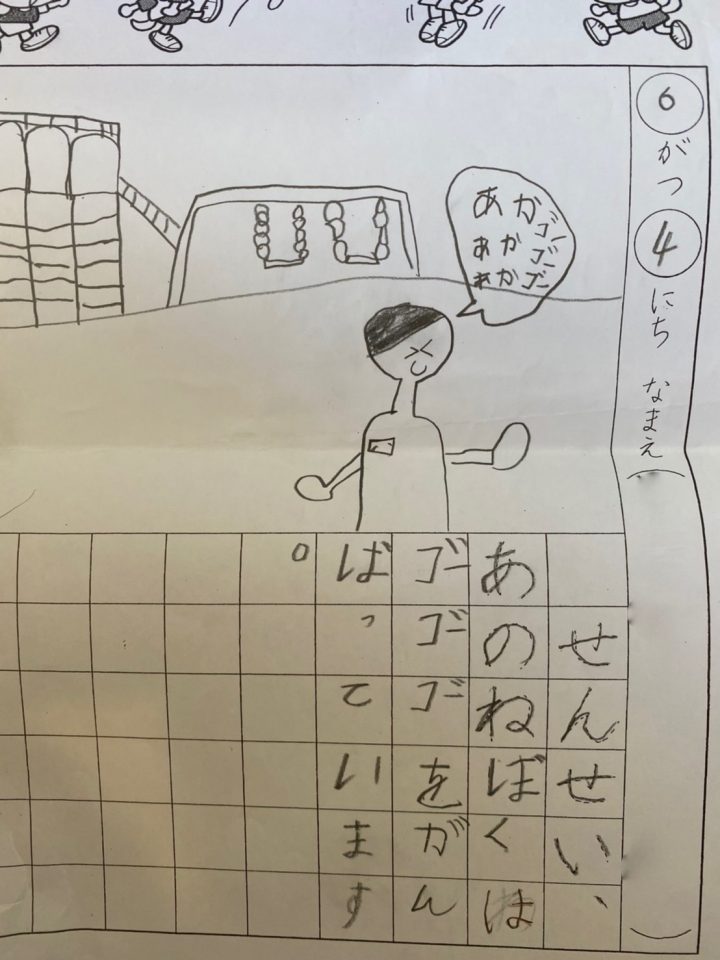 6がつ4にち なまえ( )
あかゴ
あかゴ
あかゴ
せんせい、
あのねぼくは
ゴゴゴをがん
ばっています
。